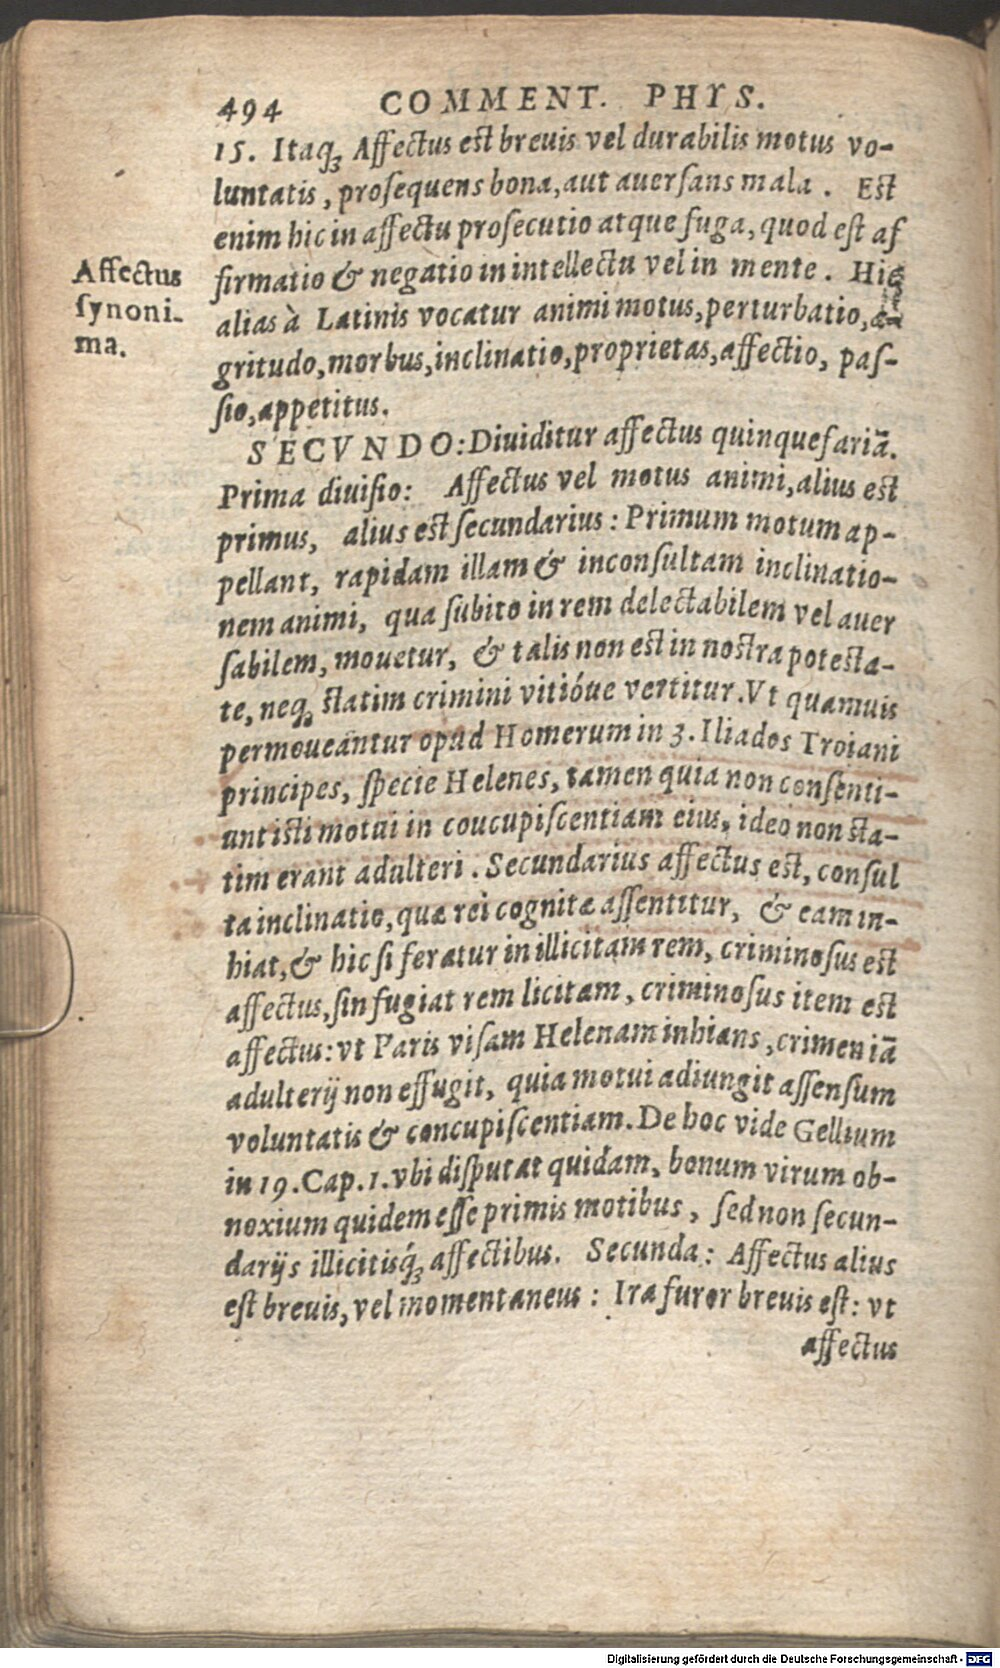 494 COMMENT. PHYS.
15. Itaq́ꝫ Affectus est breuis vel durabilis motus vo-
luntatis, prosequens bona, aut auersans mala. Est
enim hic in affectu prosecutio atque fuga, quod est af
firmatio & negatio in intellectu vel in mente. Hic
Affectus
synoni-
ma.
alias à Latinis vocatur animi motus, perturbatio, æ-
gritudo, morbus, inclinatio, proprietas, affectio, pas-
sio, appetitus.
SECVNDO: Diuiditur affectus quinquefariā.
Prima diuisio: Affectus vel motus animi, alius est
primus, alius est secundarius: Primum motum ap-
pellant, rapidam illam & inconsultam inclinatio-
nem animi, qua subito in rem delectabilem vel auer
sabilem, mouetur, & talis non est in nostra potesta-
te, neqꝫ statim crimini vitióue vertitur. Vt quamuis
permoueantur opud Homerum in 3. Iliados Troiani
principes, specie Helenes, tamen quia non consenti-
unt isti motui in coucupiscentiam eius, ideo non sta-
tim erant adulteri. Secundarius affectus est, consul
ta inclinatio, quæ rei cognitæ assentitur, & eam in-
hiat, & hic si feratur in illicitam rem, criminosus est
affectus, sin fugiat rem licitam, criminosus item est
affectus: vt Paris visam Helenam inhians, crimen iā
adulterij non effugit, quia motui adiungit assensum
voluntatis & concupiscentiam. De hoc vide Gellium
in 19. Cap. 1. vbi disputat quidam, bonum virum ob-
noxium quidem esse primis motibus, sed non secun-
darijs illicitisq́ꝫ affectibus. Secunda: Affectus alius
est breuis, vel momentaneus: Ira furor breuis est: vt
affectus
Digitalisierung gefördert durch die Deutsche Forschungsgemeinschaft - DFG